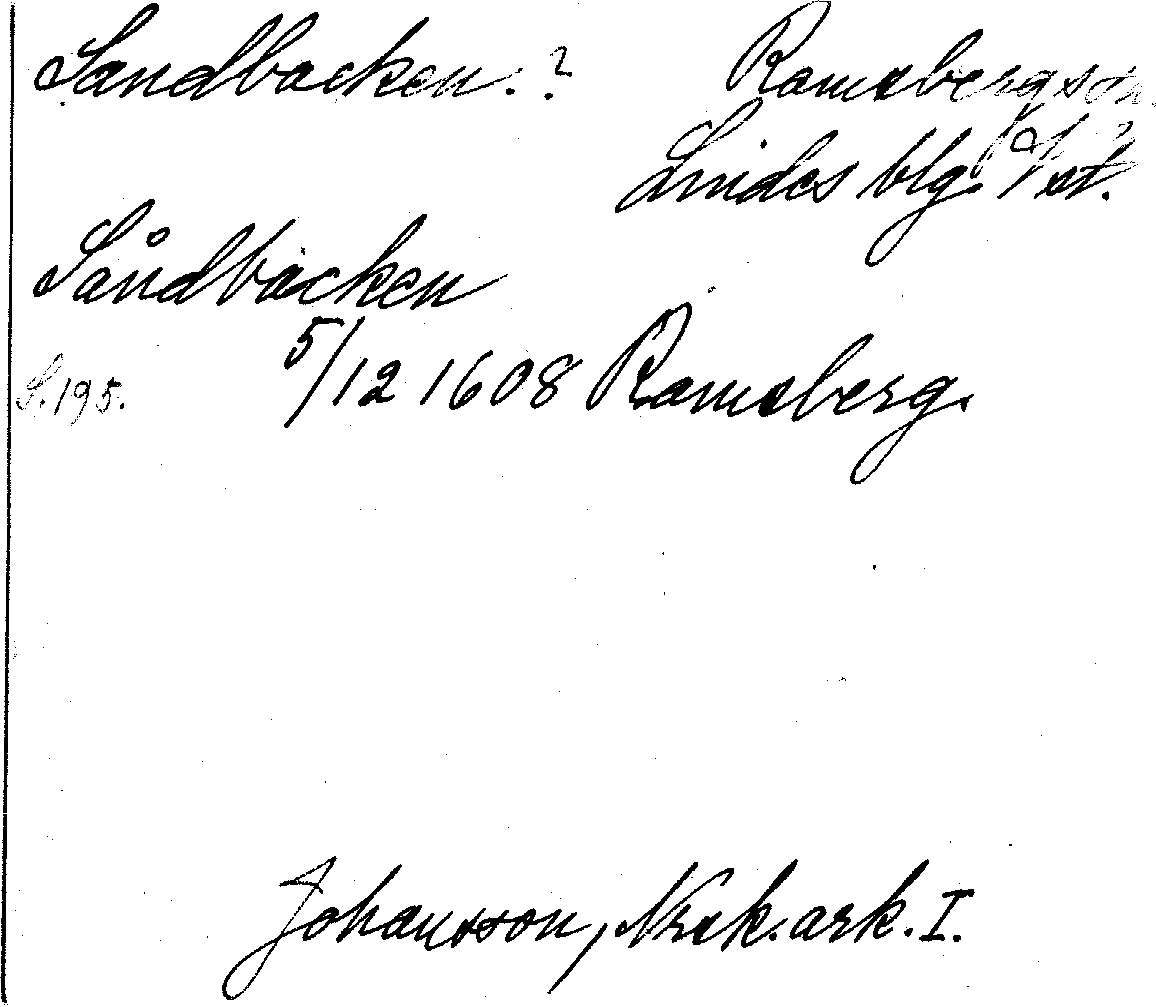 Sandbacken.? Ramsbergs sn.
Lindes blg. Vst.
Såndbäcken
S. 195. 5/12 1608 Ramsberg.
Johansson, Nrsk. ark. I.